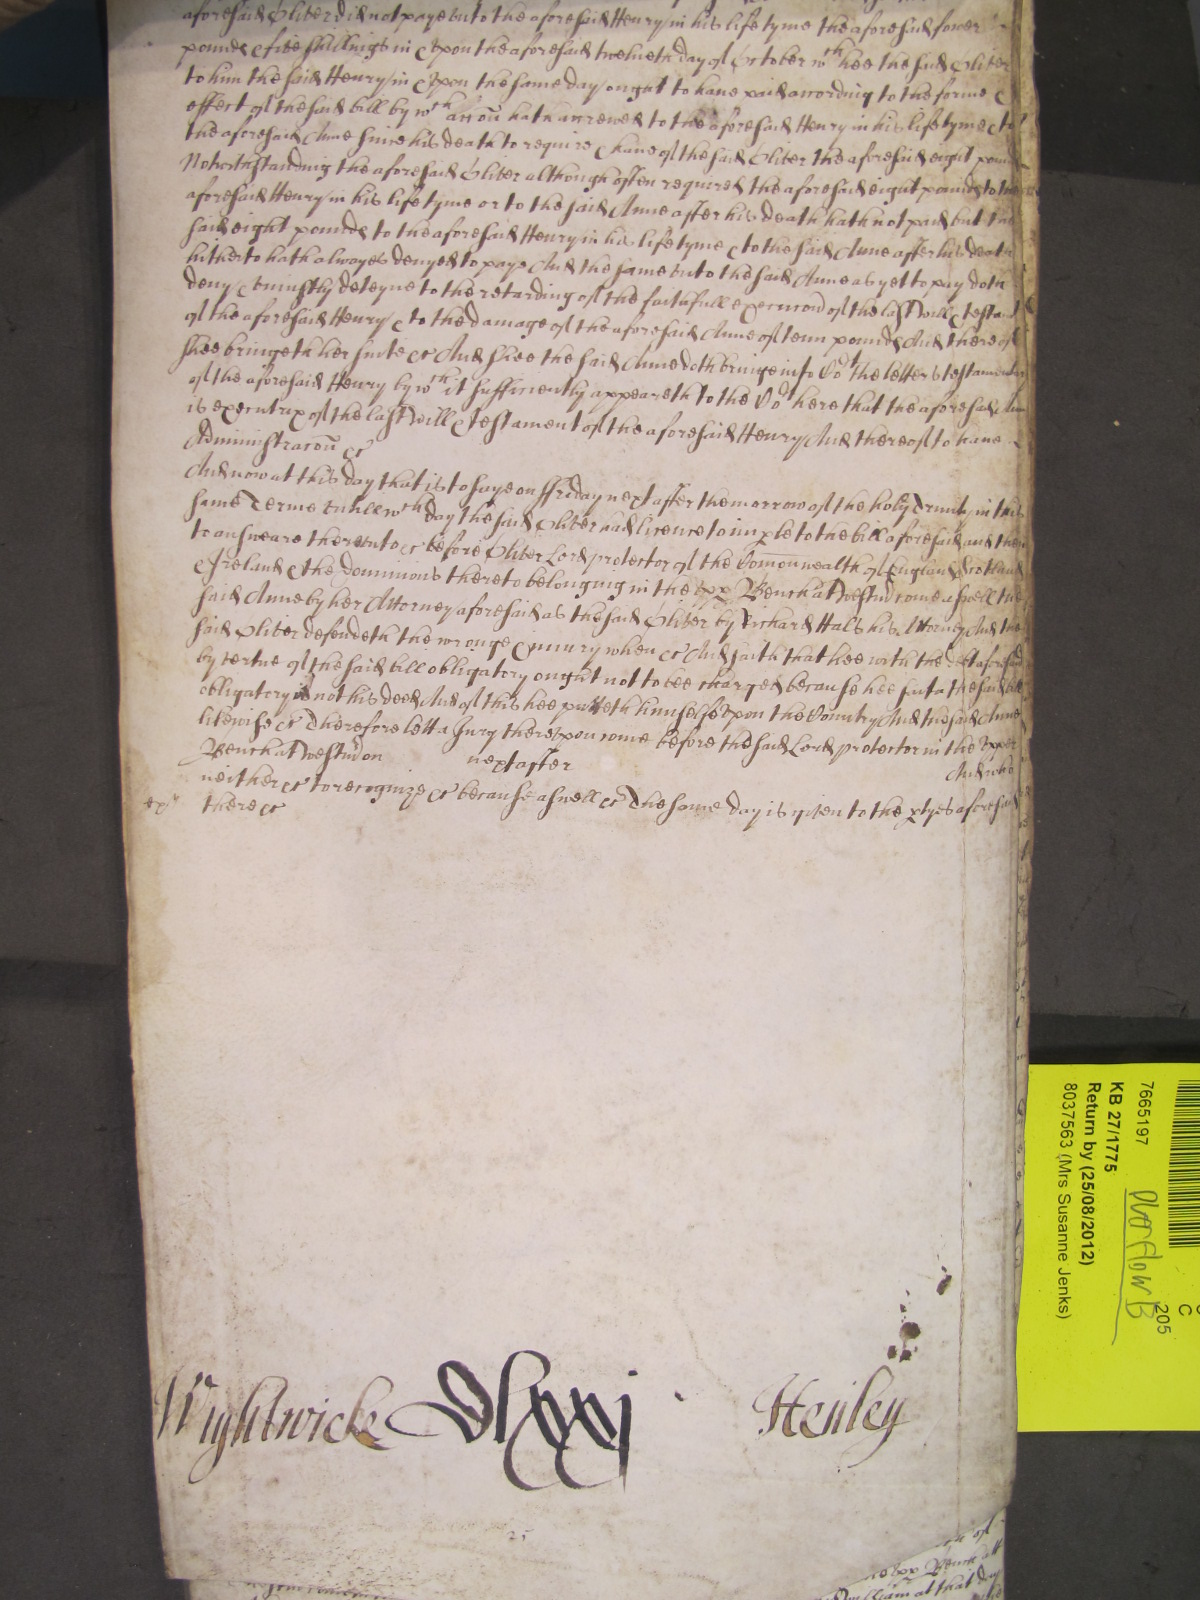 aforesaid Oliver did not paye unto the aforesaid Henry in his life tyme the aforesaid fower
pounds & five shillings in & upon the aforesaid twelueth day of October wch hee the said Oliver
to him the said Henry in & upon the same day ought to haue paid according to the forme &
effect of the said bill by wch accon hath accrewed to the aforesaid Henry in his life tyme & to
the aforesaid Anne since his death to require & haue of the said Oliver the aforesaid eight pounds
Notwithstanding the aforesaid Oliver although often required the aforesaid eight pounds to the
aforesaid Henry in his life tyme or to the said Anne after his death hath not paid but the
said eight pounds to the aforesaid Henry in his life tyme & to the said Anne after his death
hitherto hath alwayes denyed to paye And the same unto the said Anne as yet to pay doth
deny & uniustly deteyne to the retarding of the faithfull execucion of the last will & testamt
of the aforesaid Henry & to the damage of the aforesaid Anne of tenn pounds And thereof
shee bringeth her suite &c And shee the said Anne doth bringe into Cot the letters testamentary
of the aforesaid Henry by wch it sufficiently appeareth to the Cot here that the aforesaid Anne
is executrix of the last will & testament of the aforesaid Henry And thereof to haue
Administracon &c
And now at this day that is to saye on ffriday next after the morrow of the holy Trinity in this
same Terme untill wch day the said Oliver had licence to imple to the bill aforesaid and then
to answeare thereunto &c before Oliver Lord protector of the Comonwealth of England Scotland
& Ireland & the dominions thereto belonging in the upp Bench at Westm come aswell the
said Anne by her Attorney aforesaid as the said Oliver by Richard Hals his Attorney And the
said Oliver defendeth the wronge & iniury when &c And saith that hee with the debt aforesaid
by vertue of the said bill obligatory ought not to bee charged because hee saith the said bill
obligatory is not his deed And of this hee putteth himselfe upon the Country And the said Anne
likewise &c Therefore lett a Jury thereupon come before the said Lord protector in the upper
Bench at Westm on next after And who
neither &c to recognize &c because aswell &c The same day is given to the ptyes aforesaid
there &c
Wightwicke Dlxxj Henley
25
7665197
KB 27/1775
Return by (25/08/2012)
8037563 (Mrs Susanne Jenks)
Overflow B
205
C